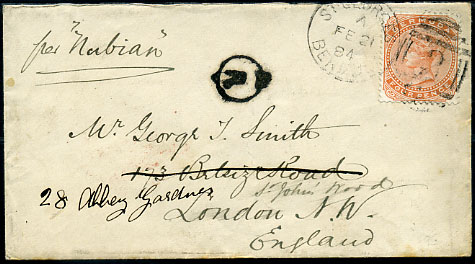 per "Nubian"
ST GEORGES
A
FE 21
84
BERMUDA
FOUR PENCE
Mr. George T. Smith
173 Belsize Road
28 Abbey Gardens
St John's Wood
London N.W.
England